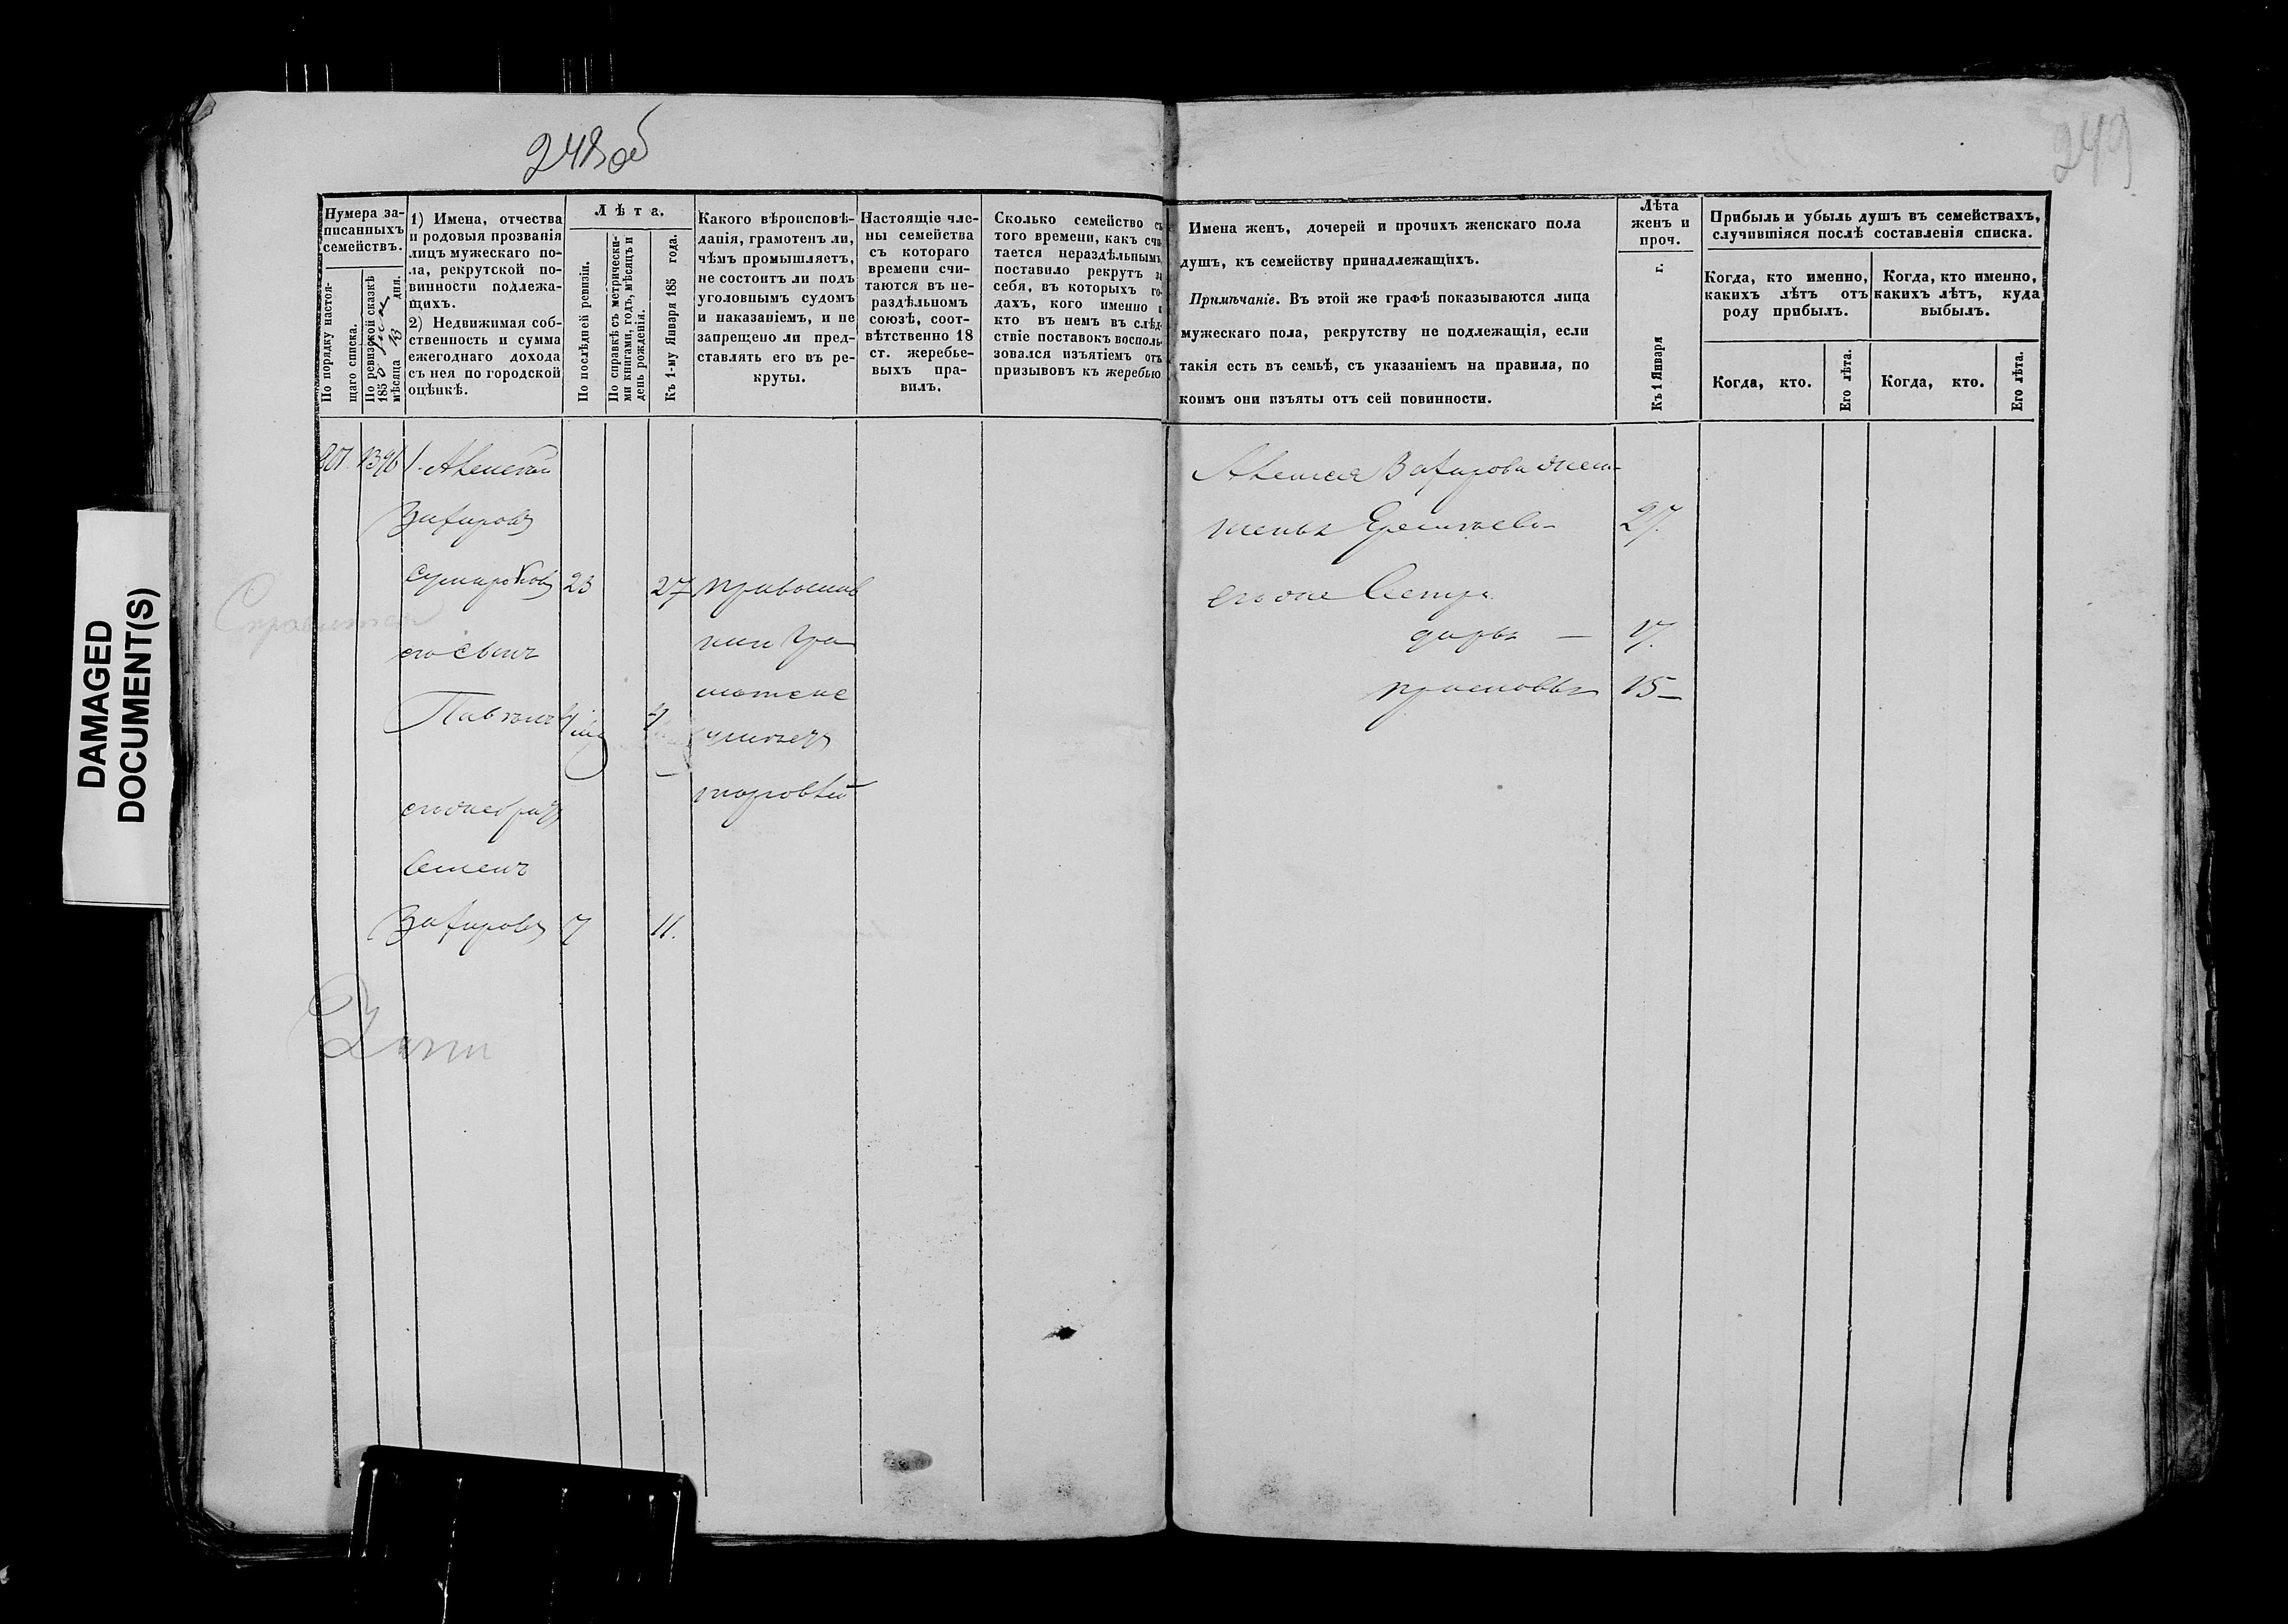 248 об
249
DAMAGED
DOCUMENT(S)
Нумера за-
писанныхъ
семействъ.
По порядку настоя-
щаго списка.
По ревизской сказкѣ
185
мѣсяца 13 дня.
1) Имена, отчества
и родовыя прозванія
лицъ мужескаго по-
ла, рекрутской по-
винности подлежа-
щихъ.
2) Недвижимая соб-
ственность и сумма
ежегоднаго дохода
съ нея по городской
оцѣнкѣ.
Лѣта.
По послѣдней ревизіи.
По справкѣ съ метрически-
ми книгами, годъ, мѣсяцъ и
день рожденія.
Къ 1-му Января 185 года.
Какого вѣроисповѣ-
данія, грамотенъ ли,
чѣмъ промышляетъ,
не состоитъ ли подъ
уголовнымъ судомъ
и наказаніемъ, и не
запрещено ли пред-
ставлять его въ ре-
круты.
Настоящіе чле-
ны семейства
съ котораго
времени счи-
таются въ не-
раздѣльномъ
союзѣ, соот-
вѣтственно 18
ст. жеребье-
выхъ пра-
вилъ.
Сколько семейство съ
того времени, какъ счи
тается нераздѣльнымъ,
поставило рекрутъ за
себя, въ которыхъ го-
дахъ, кого именно и
кто въ немъ въ слѣд-
ствіе поставокъ восполь-
зовался изъятіемъ отъ
призывовъ къ жеребью
Имена женъ, дочерей и прочихъ женскаго пола
душъ, къ семейству принадлежащихъ.
Примѣчаніе. Въ этой же графѣ показываются лица
мужескаго пола, рекрутству не подлежащія, если
такія есть въ семьѣ, съ указаніемъ на правила, по
коимъ они изъяты отъ сей повинности.
Лѣта
женъ и
проч.
Къ 1 Января г.
Прибыль и убыль душъ въ семействахъ,
случившіяся послѣ составленія списка.
Когда, кто именно,
какихъ лѣтъ отъ
роду прибылъ.
Когда, кто именно,
какихъ лѣтъ, куда
выбылъ.
Когда, кто.
Его лѣта.
Когда, кто.
Его лѣта.
801. 1396 1. Алексѣй
Зафировъ
Сумароковъ 23 27 православ
его сынъ
Павелъ
его же братъ
Семенъ
Зафировъ 7 11.
ный гра
мотене
торговлей
Алексея Зафирова
жена 27.
его же Сестра
Дарья — 17.
Прасковья 15 —